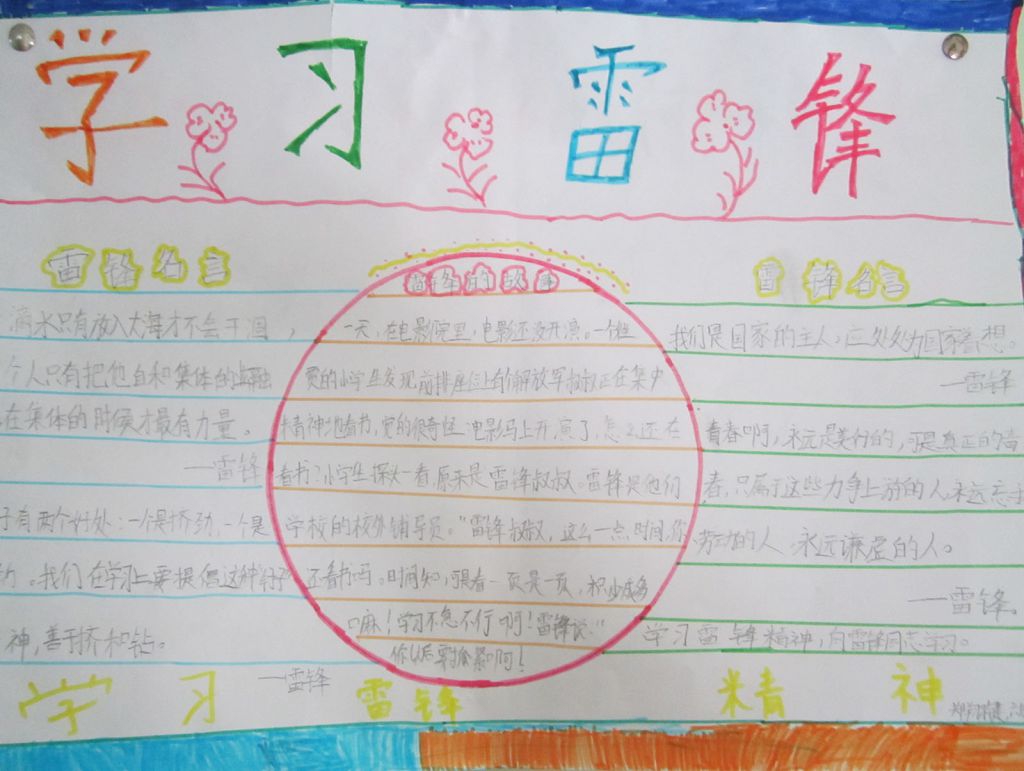 学习雷锋
雷锋名言
滴水只有放入大海才不会干涸，
个人只有把他自和集体的事融
在集体的时候才最有力量。
—雷锋
子有两个好处：一个是挤劲，一个是
。我们在学习上要提倡这种“钉子”
神，善于挤和钻。
—雷锋
雷锋的故事
一天，在电影院里，电影还没开演。一个
觉的小学生发现前排座位上有个解放军叔叔正在集中
精神地看书，觉的很奇怪电影马上开演了，怎么还在
看书？小学生探头一看，原来是雷锋叔叔。雷锋是他们
学校的校外辅导员。“雷锋叔叔，这么一点时间，你
还看书吗。时间短，可看一页是一页，积少成多
嘛！学习不急不行啊！雷锋说：“
你以后要抓紧啊！
雷锋名言
我们是国家的主人，应处处为国家着想。
—雷锋
青春啊，永远是美好的，可是真正的青
春，只属于这些力争上游的人，永远忘
劳动的人，永远谦虚的人。
—雷锋。
学习雷锋精神，向雷锋同志学习。
学习雷锋精神